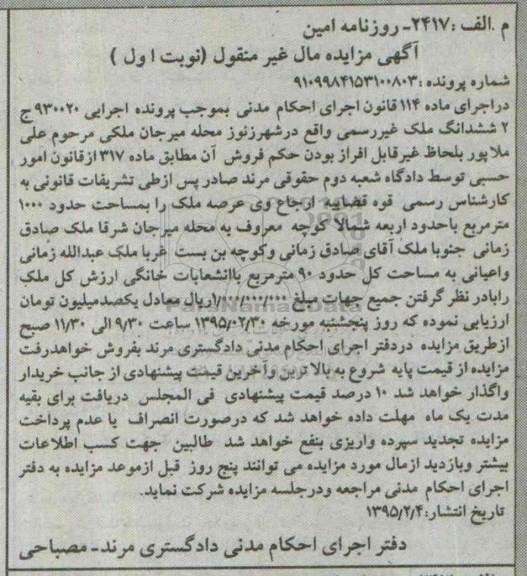 م .الف :۲۴۱۷- روزنامه امین
آگهی مزایده مال غیر منقول (نوبت اول )
شماره پرونده :۹۱۰۹۹۸۴۱۵۳۱۰۰۸۰۳
دراجرای ماده ۱۱۴ قانون اجرای احکام مدنی بموجب پرونده اجرایی ۹۳۰۰۲۰ ج
۲ ششدانگ ملک غیررسمی واقع درشهرزنوز محله میرجان ملکی مرحوم علی
ملاپور بلحاظ غیرقابل افراز بودن حکم فروش آن مطابق ماده ۳۱۷ ازقانون امور
حسبی توسط دادگاه شعبه دوم حقوقی مرند صادر پس ازطی تشریفات قانونی به
کارشناس رسمی قوه قضاییه ارجاع وی عرصه ملک را بمساحت حدود ۱۰۰۰
مترمربع باحدود اربعه شمالا کوچه معروف به محله میرجان شرقا ملک صادق
زمانی جنوبا ملک آقای صادق زمانی وکوچه بن بست غربا ملک عبدالله زمانی
واعیانی به مساحت کل حدود ۹۰ مترمربع باانشعابات خانگی ارزش کل ملک
رابادر نظر گرفتن جمیع جهات مبلغ ۱/۰۰۰/۰۰۰/۰۰۰ریال معادل یکصدمیلیون تومان
ارزیابی نموده که روز پنجشنبه مورخه ۱۳۹۵/۰۲/۳۰ ساعت ۹/۳۰ الی ۱۱/۳۰ صبح
ازطریق مزایده دردفتر اجرای احکام مدنی دادگستری مرند بفروش خواهدرفت
مزایده از قیمت پایه شروع به بالا ترین وآخرین قیمت پیشنهادی از جانب خریدار
واگذار خواهد شد ۱۰ درصد قیمت پیشنهادی فی المجلس دریافت برای بقیه
مدت یک ماه مهلت داده خواهد شد که درصورت انصراف یا عدم پرداخت
مزایده تجدید سپرده واریزی بنفع خواهد شد طالبین جهت کسب اطلاعات
بیشتر وبازدید ازمال مورد مزایده می توانند پنج روز قبل ازموعد مزایده به دفتر
اجرای احکام مدنی مراجعه ودرجلسه مزایده شرکت نماید.
تاریخ انتشار:۱۳۹۵/۲/۴
دفتر اجرای احکام مدنی دادگستری مرند- مصباحی